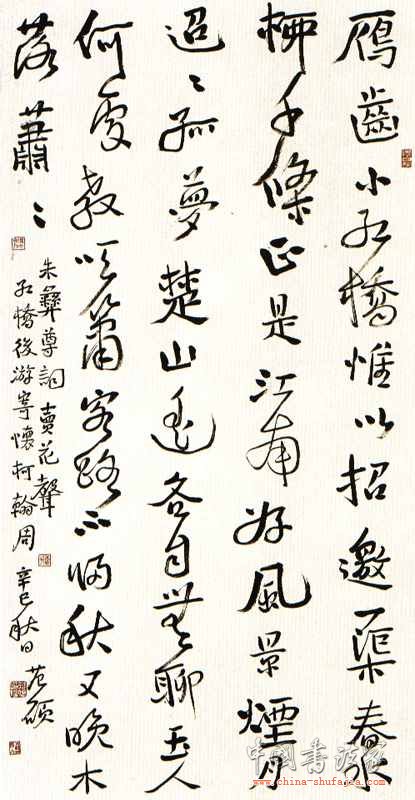 鴈齒小紅橋惟以招邀一渠春水
柳千條正是江南好風景煙月
迢〻孤夢楚山遙各自無聊玉人
何處教吹簫客路不秋又晚木
落蕭〻
朱彝尊詞 賣花聲
紅橋後游寄懷柯翰周 辛巳秋日 范碩
中國書法家
www.china-shufajia.com